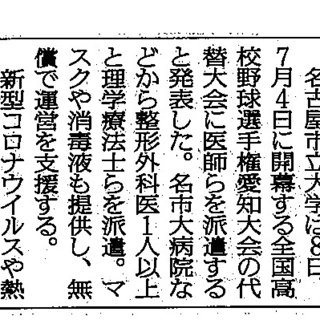 名古屋市立大学は8日、
7月4日に開幕する全国高
校野球選手権愛知大会の代
替大会に医師らを派遣する
と発表した。名市大病院な
どから整形外科医1人以上
と理学療法士らを派遣。マ
スクや消毒液も提供し、無
償で運営を支援する。
新型コロナウイルスや熱